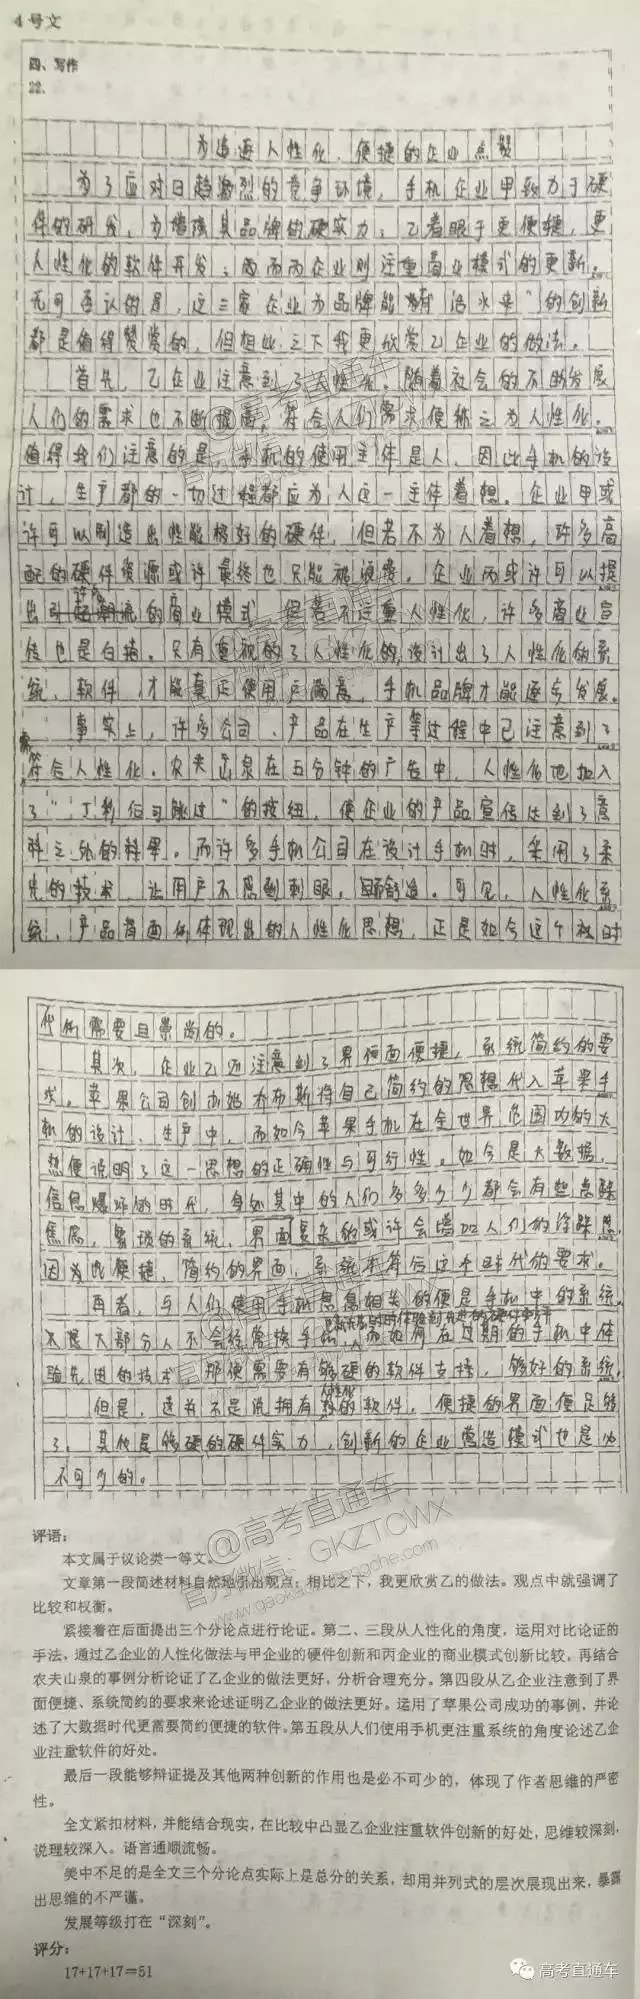 4号文
四、写作
22.
为追逐人性化、便捷的企业点赞
为了应对日趋激烈的竞争环境，手机企业甲致力于硬
件的研发，为增强其品牌的硬实力；乙着眼于更便捷，更
人性化的软件开发；而丙企业则注重商业模式的更新。
无可否认的是，这三家企业为品牌能够有"活水来"的创新
都是值得赞赏的，但相比之下我更欣赏乙企业的做法。
首先，乙企业注意到了人性化。随着社会的不断发展
人们的需求也不断提高，符合人们需求便称之为人性化。
值得我们注意的是，手机的使用主体是人，因此手机的设
计，生产都的一切过程都应为人这一主体着想。企业甲或
许可以制造出性能极好的硬件，但若不为人着想，许多高
配的硬件资源或许最终也只能被浪费。企业丙或许可以提
出引起潮流的商业模式，但若不注重人性化，许多商业宣
传也是白搭。只有重视的了人性化的，设计出了人性化的系
统、软件，才能真正使用户满意，手机品牌才能逐步发展。
事实上，许多公司、产品在生产等过程中已注意到了
符合人性化。农夫山泉在五分钟的广告中，人性化地加入
了"丁秒后可跳过"的按纽，使企业的产品宣传达到了意
料之外的料果。而许多手机公司在设计手机时，采用了柔
光的技术，让用户不感到刺眼，可见，人性化系
统、产品等面体现出的人性化思想，正是如今这个权时
代所需要且崇尚的。
其次，企业乙还注意到了界面便捷，系统简约的要
求。苹果公司创始乔布斯将自己简约的思想代入苹果手
机的设计、生产中，而如今苹果手机在全世界范围内的大
热便说明了这一思想的正确性与可行性。如今是大数据、
信息爆炸的时代，身处其中的人们多多少少都会有些点躁
焦虑，繁琐的系统、界面复杂的或许会增加人们的浮躁感
因为此便捷、简约的界面，系统才符合这个时代的要求。
再者，与人们使用手机息息相关的便是手机中的系统。
不是大部分人不会经常换手机，而如何在过期的手机中体
验先进的技术，那便需要有够硬的软件支撑，够好的系统。
但是，这并不是说拥有人性化的软件，便捷的界面便足够
了。其他是够硬的硬件实力，创新的企业营造模式也是必
不可少的。
评语：
本文属于议论类一等文。
文章第一段简述材料自然地引出观点：相比之下，我更欣赏乙的做法。观点中就强调了
比较和权衡。
紧接着在后面提出三个分论点进行论证。第二、三段从人性化的角度，运用对比论证的
手法，通过乙企业的人性化做法与甲企业的硬件创新和丙企业的商业模式创新比较，再结合
农夫山泉的事例分析论证了乙企业的做法更好，分析合理充分。第四段从乙企业注意到了界
面便捷、系统简约的要求来论述证明乙企业的做法更好。运用了苹果公司成功的事例，并论
述了大数据时代更需要简约便捷的软件。第五段从人们使用手机更注重系统的角度论述乙企
业注重软件的好处。
最后一段能够辩证提及其他两种创新的作用也是必不可少的，体现了作者思维的严密
性。
全文紧扣材料，并能结合现实，在比较中凸显乙企业注重软件创新的好处，思维较深刻，
说理较深入。语言通顺流畅。
美中不足的是全文三个分论点实际上是总分的关系，却用并列式的层次展现出来，暴露
出思维的不严谨。
发展等级打在"深刻"。
评分：
17+17+17=51
高考直通车